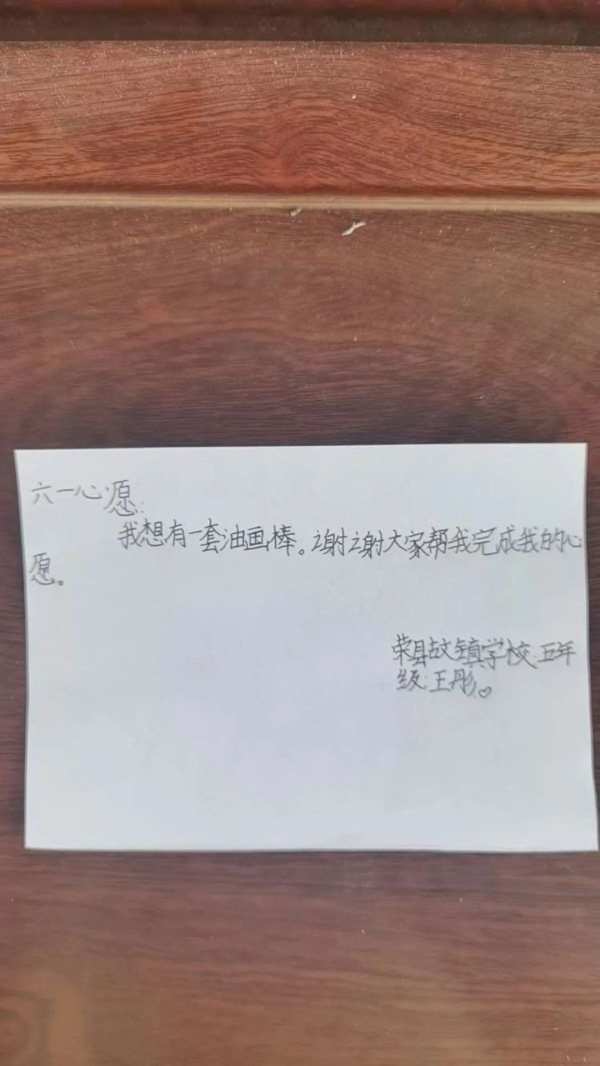 六一心愿:
我想有一套油画棒。谢谢大家帮我完成我的心
愿。
荣县古文镇学校:五年
级:王彤。